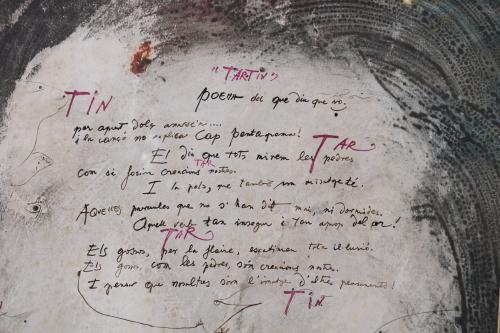 "TARTIN"
TIN
POEMA del que diu que no.
per aquest dolç
i la cançó no replica Cap pentagrama!
TAR
El dia que tots mirem les pedres
TAR
com si fossin creacions nostres.
I la pols, que també
AQUELLES paraules que no s'han dit mai, ni
Aquell vent tan insegur i l'or!
TAR
Els gossos, per la flaire, tota il·lusió.
Els gossos, com les pedres, són creacions nostres.
I pensar que nosaltres som l'imatge d'altres pensaments!
TIN